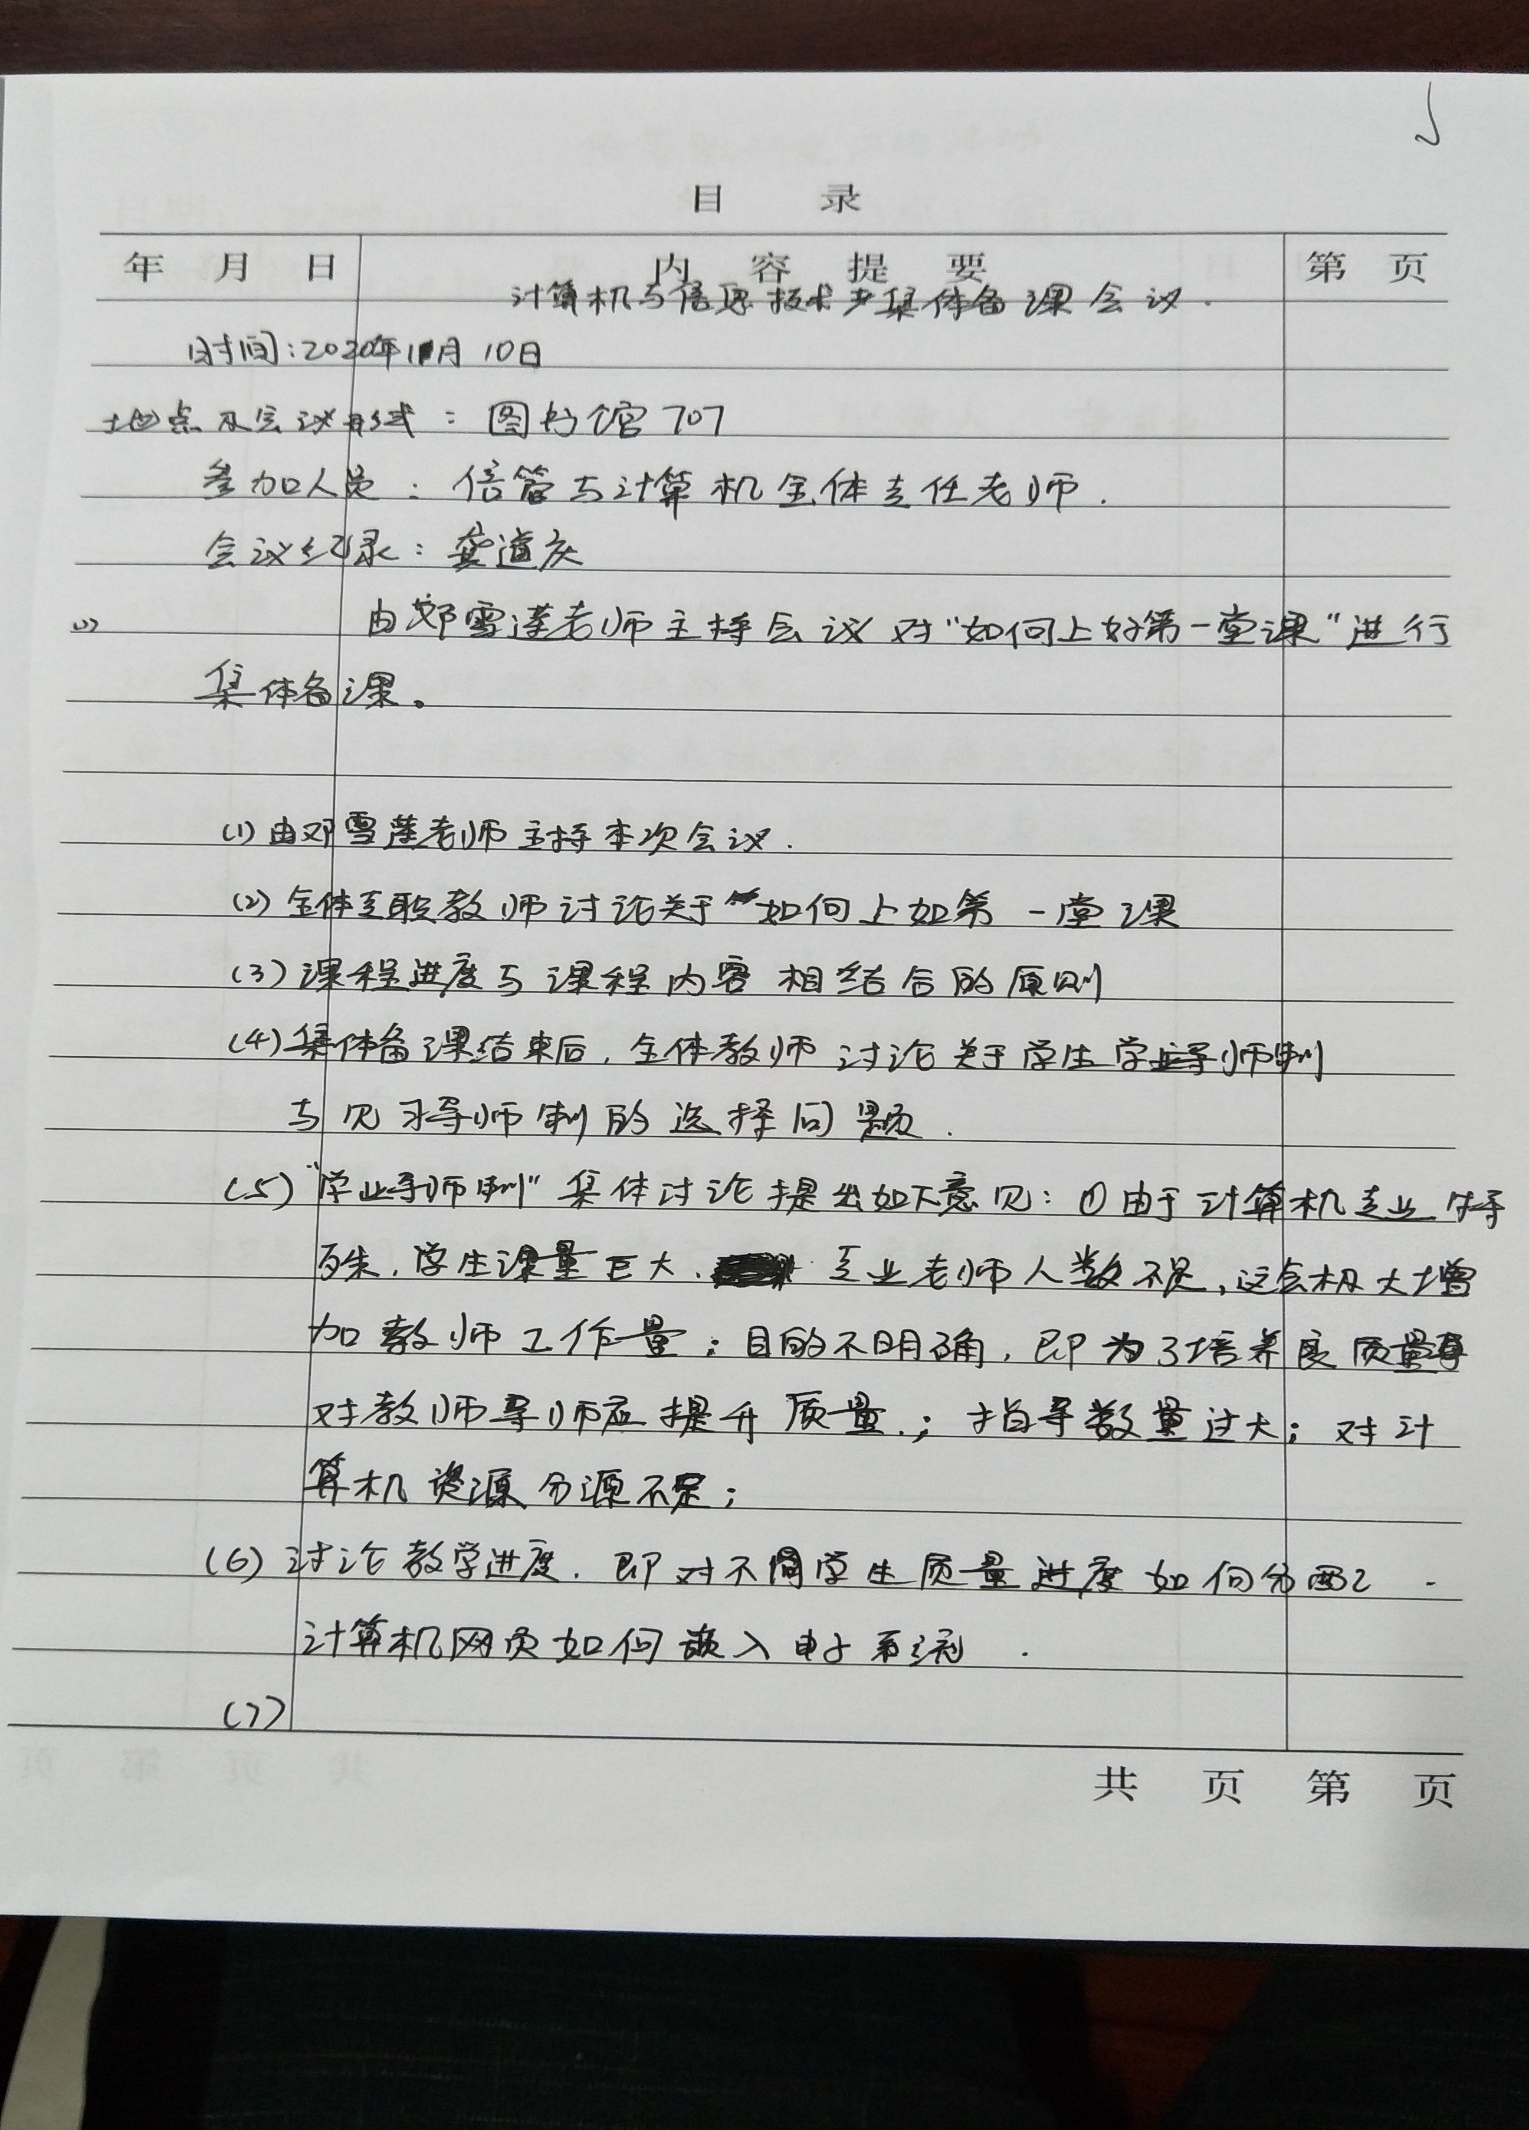 目 录
年 月 日 内 容 提 要 第 页
计算机与信息技术 集体备课会议.
时间:2020年11月10日
地点及会议形式：图书馆707
参加人员：信管与计算机全体专任老师.
会议纪录：龚道庆
(1) 由邓雪莲老师主持会议对"如何上好第一堂课"进行
集体备课。
(1)由邓雪莲老师主持本次会议.
(2)全体专职教师讨论关于如何上好第一堂课
(3)课程进度与课程内容相结合的原则
(4)集体备课结束后,全体教师讨论关于学生学业导师制
与见习导师制的选择问题.
(5)"学业导师制"集体讨论提出如下意见：①由于计算机专业特
殊,学生课量巨大、专业老师人数不足,这会极大增
加教师工作量；目的不明确,即为了培养良质量
对教师导师应提升质量；指导数量过大；对计
算机资源分源不足；
(6)讨论教学进度.即对不同学生质量进度如何分配?
计算机网页如何嵌入电子系统.
(7)
共 页 第 页